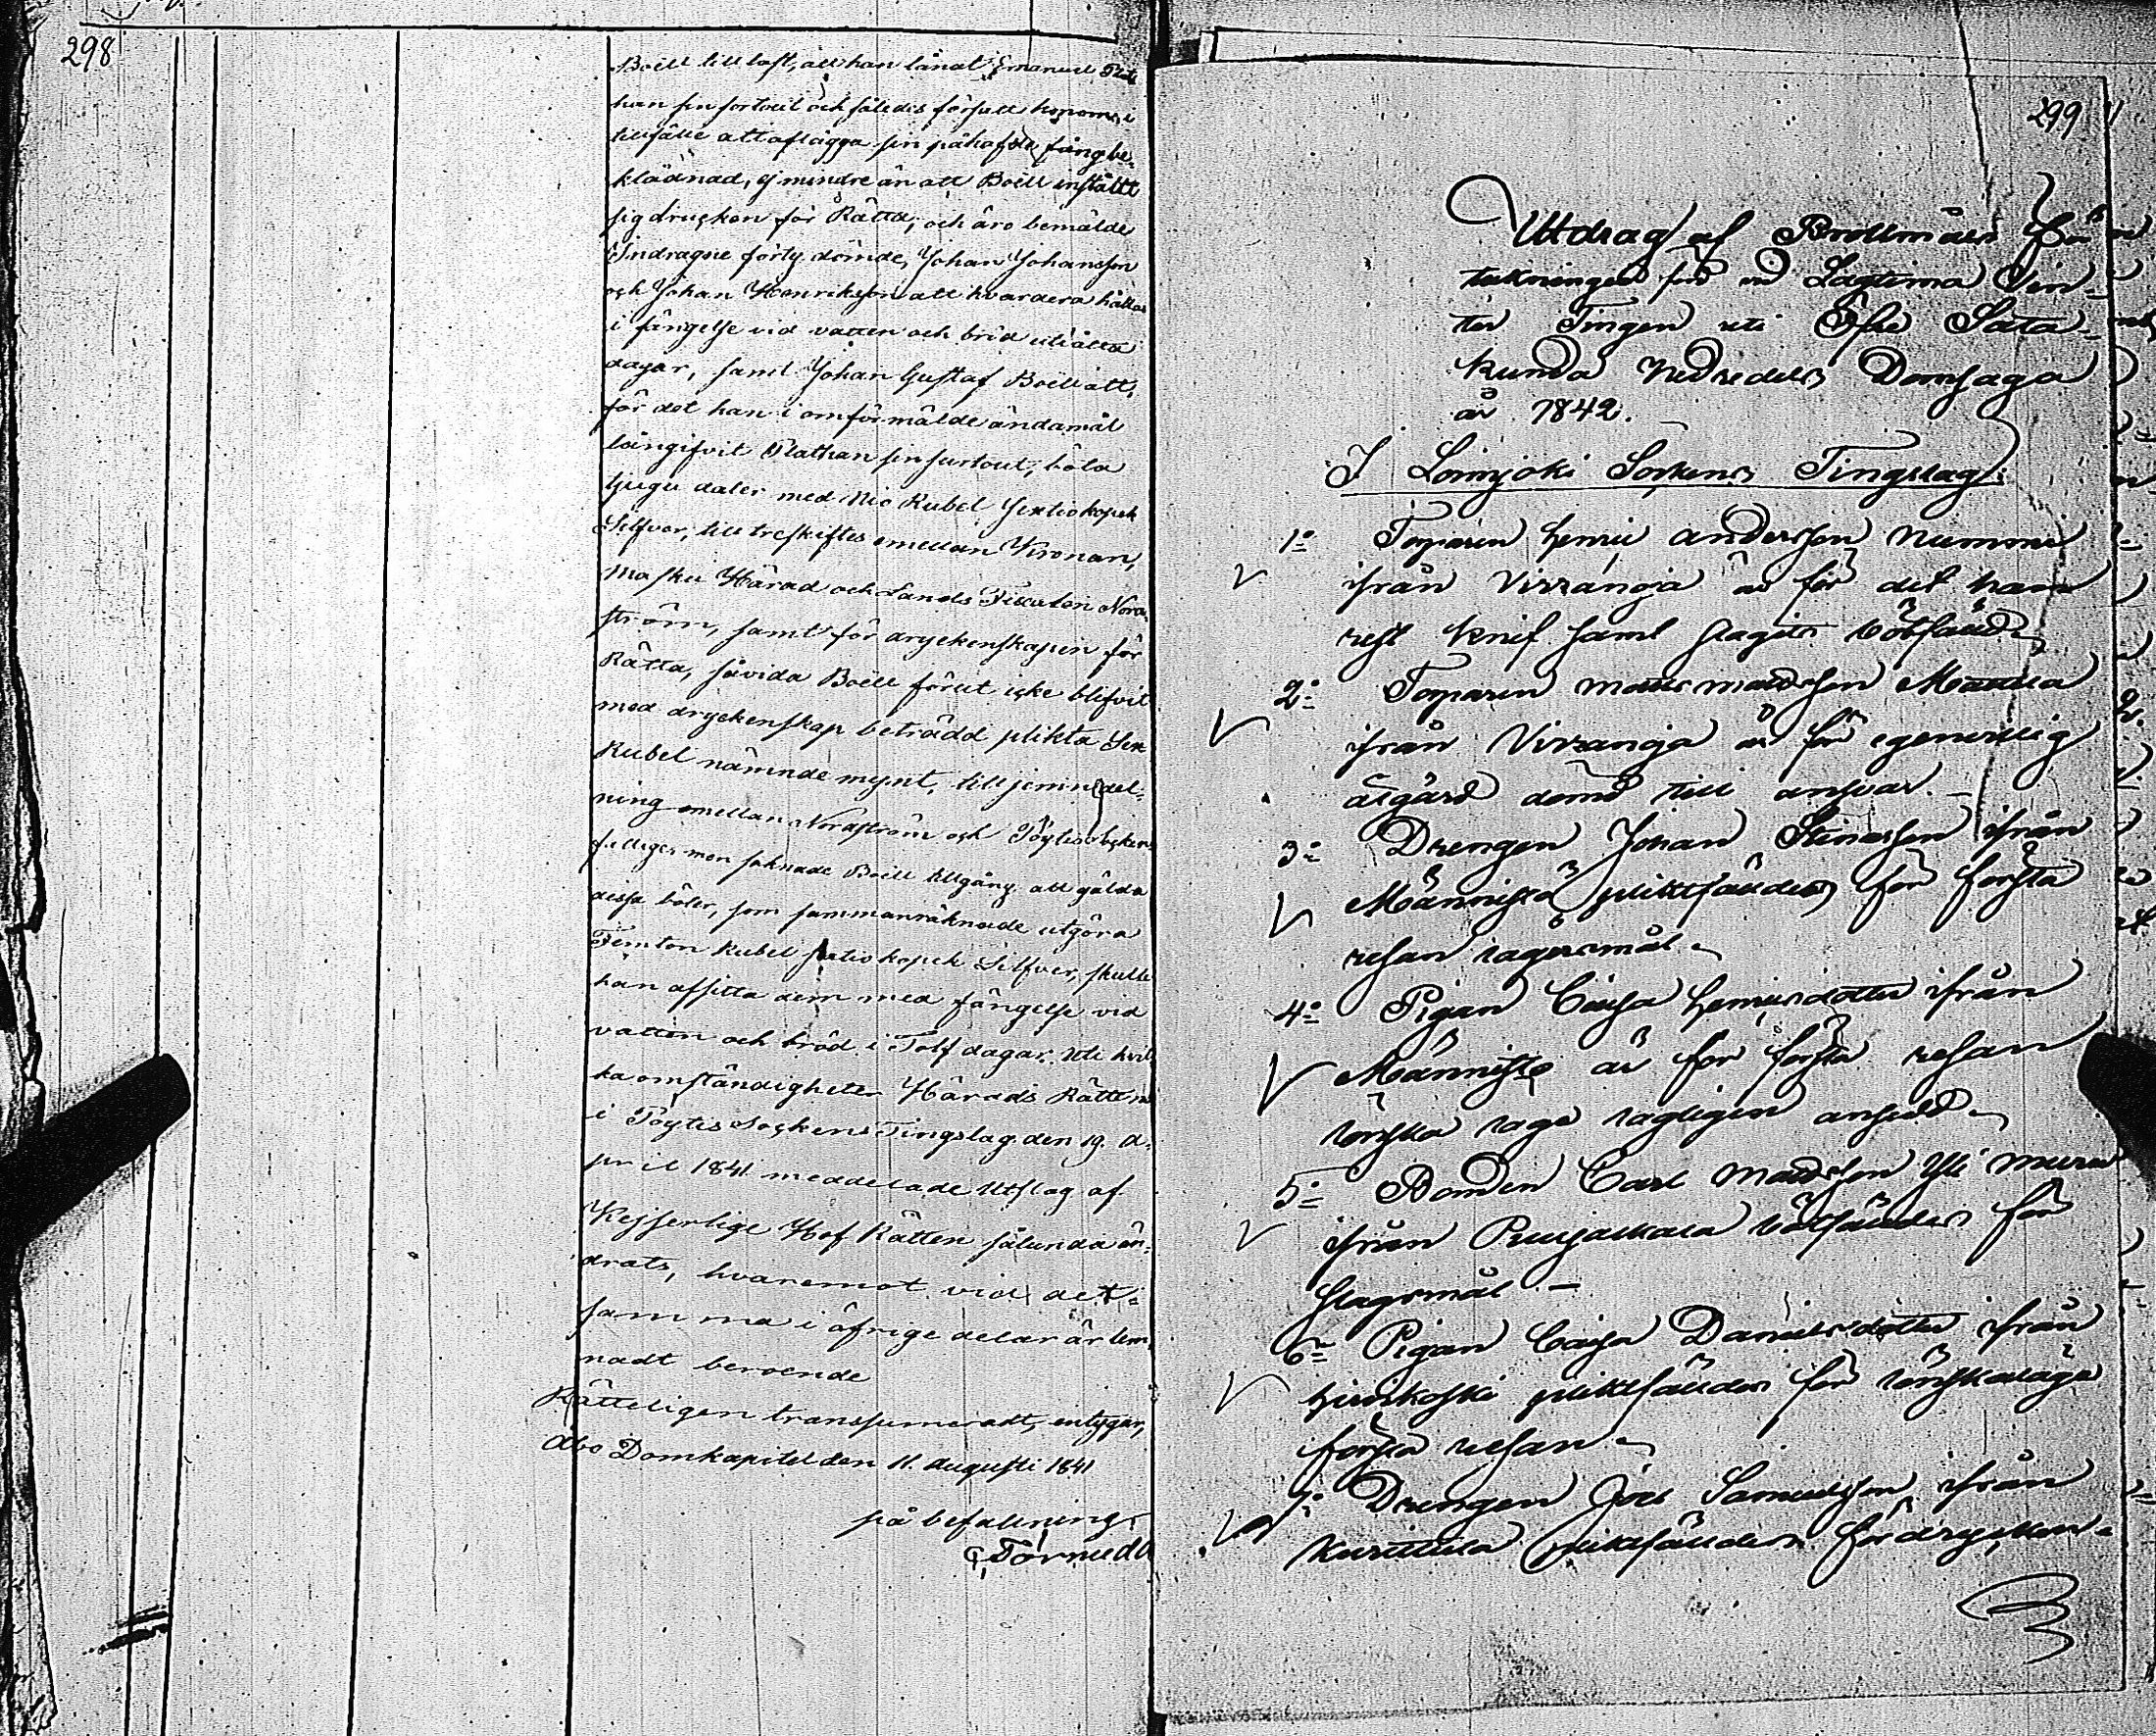 298
Boëll till last, att han lånat Emanuel Plat
han sin sortout och således försatt honom i
tillfälle att aflägga sin påhafde fångbe-
klädnad, ej mindre än att Boëll inställt
sig drucken för Rätta; och äro bemälde
Indragne förty dömde, Johan Johansson
och Johan Henriksson att hvardera hållas
i fängelse vid vatten och bröd uti åtta
dagar, samt Johan Gustaf Boëll att,
för det han i omförmälde ändamål
långifvit Plathan sin surtout, böta
tjugu daler med Nio Rubel Sextio kopek
Silfver, till treskiftes emellan Kronan,
Masku Härad och Lands Fiscalen Nord
ström, samt för dryckenskapen för
Rätta, såvida Boëll förut icke blifvit
med dryckenskap beträdd plikta Sex
Rubel nämnde mynt, till jemn del-
ning emellan Nordström och Pöytis Sockens
fattige; men saknade Boëll tillgång att gälda
dessa böter, som sammanräknade utgöra
Femton Rubel sextio kopek Silfver, skulle
han afsitta dem med fängelse vid
vatten och bröd i Tolf dagar. Uti hvil
ka omständigheter Härads Rättens
i Pöytis Sockens Tingslag den 19. A-
pril 1841 meddelade Utslag af
Kejserlige Hof Rätten sålunda än-
drats, hvaremot vid det-
samma i öfrige delar är lem
nadt beroende
Rätteligen transsumeradt, intygar,
Åbo Domkapitel den 11. Augusti 1841
på befallning
G, Törnudd
299
Utdrag af Brottmåls För
tekningen förd vid Lagtima Vin-
ter Tingen uti Öfre Sata-
kunda Nedredels Domsaga
år 1842.
I Loimjoki Sockens Tingslag:
1:o Torparen Henric Andersson Nummi
ifrån Virranoja är för det han
rest knif samt slagits bötfälld
2:o Torparen Matts Mattsson Mattila
ifrån Virranoja är för egenvillig
åtgärd dömd till ansvar.
3:o Drengen Johan Stinasson ifrån
Männistö pliktfälldes för första
resan lägersmål
4:o Pigan Caisa Henricsdotter ifrån
Männistö är för första resan
lönska läge lagligen ansedd
5:o Bonden Carl Mattsson Yli
ifrån bötfälldes för
slagsmål
6:o Pigan Caisa Danielsdotter ifrån
Hirvikoski pliktfälldes för lönskaläge
första resan
7:o Drengen Joel Samuelsson ifrån
pliktfälldes för drycken-